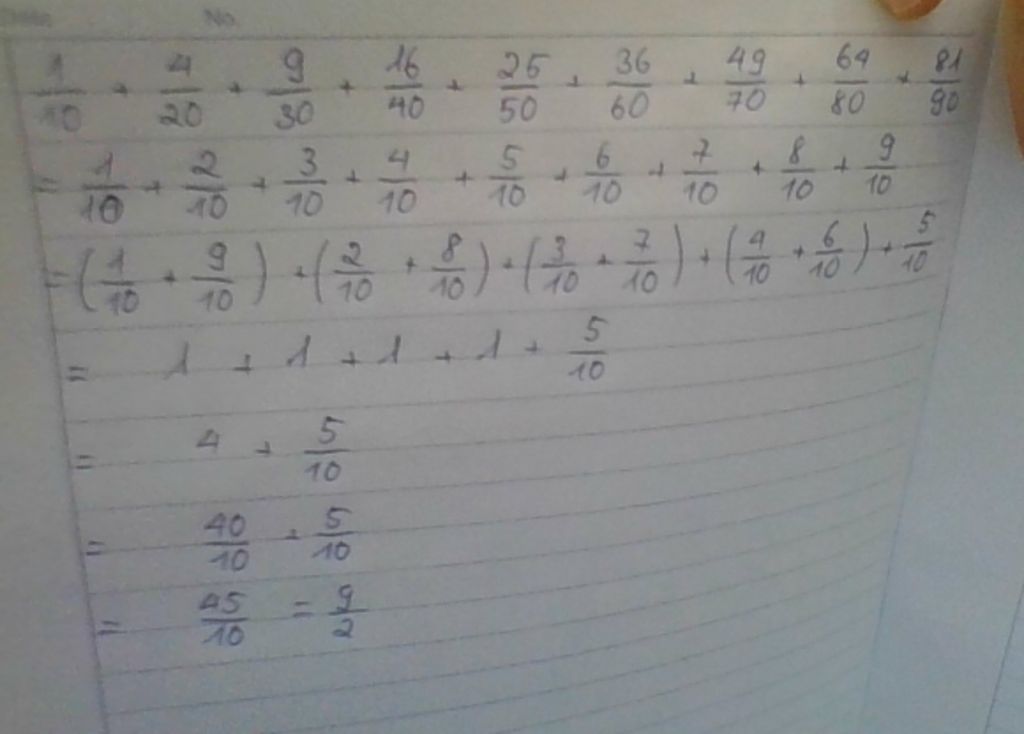 No.
1/10 + 4/20 + 9/30 + 16/40 + 25/50 + 36/60 + 49/70 + 64/80 + 81/90
= 1/10 + 2/10 + 3/10 + 4/10 + 5/10 + 6/10 + 7/10 + 8/10 + 9/10
= (1/10 + 9/10) + (2/10 + 8/10) + (3/10 + 7/10) + (4/10 + 6/10) + 5/10
= 1 + 1 + 1 + 1 + 5/10
= 4 + 5/10
= 40/10 + 5/10
= 45/10 = 9/2